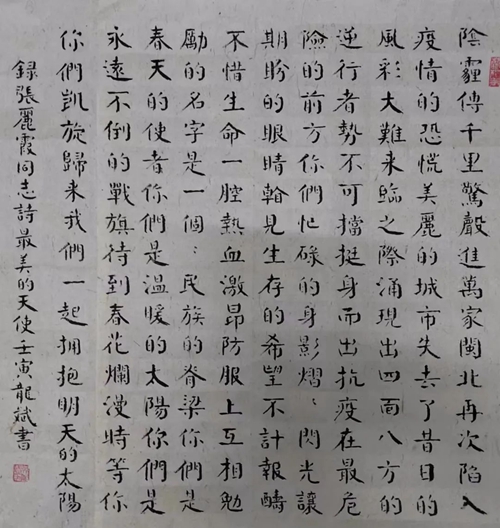 陰霾傳千里驚聲進萬家閩北再次陷入
疫情的恐慌美麗的城市失去了昔日的
風彩大難来臨之際涌現出四面八方的
逆行者勢不可擋挺身而出抗疫在最危
險的前方你們忙碌的身影熠〻閃光讓
期盼的眼睛翰見生存的希望不計報酬
不惜生命一腔熱血激昂防服上互相勉
勵的名字是一個〻民族的脊梁你們是
春天的使者你們是温暖的太陽你們是
永遠不倒的戰旗待到春花爛漫時等你
你們凱旋歸来我們一起拥抱明天的太陽
録張麗霞同志詩最美的天使壬寅龍斌書